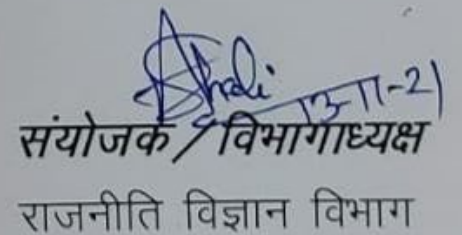 13-11-21
संयोजक / विभागाध्यक्ष
राजनीति विज्ञान विभाग